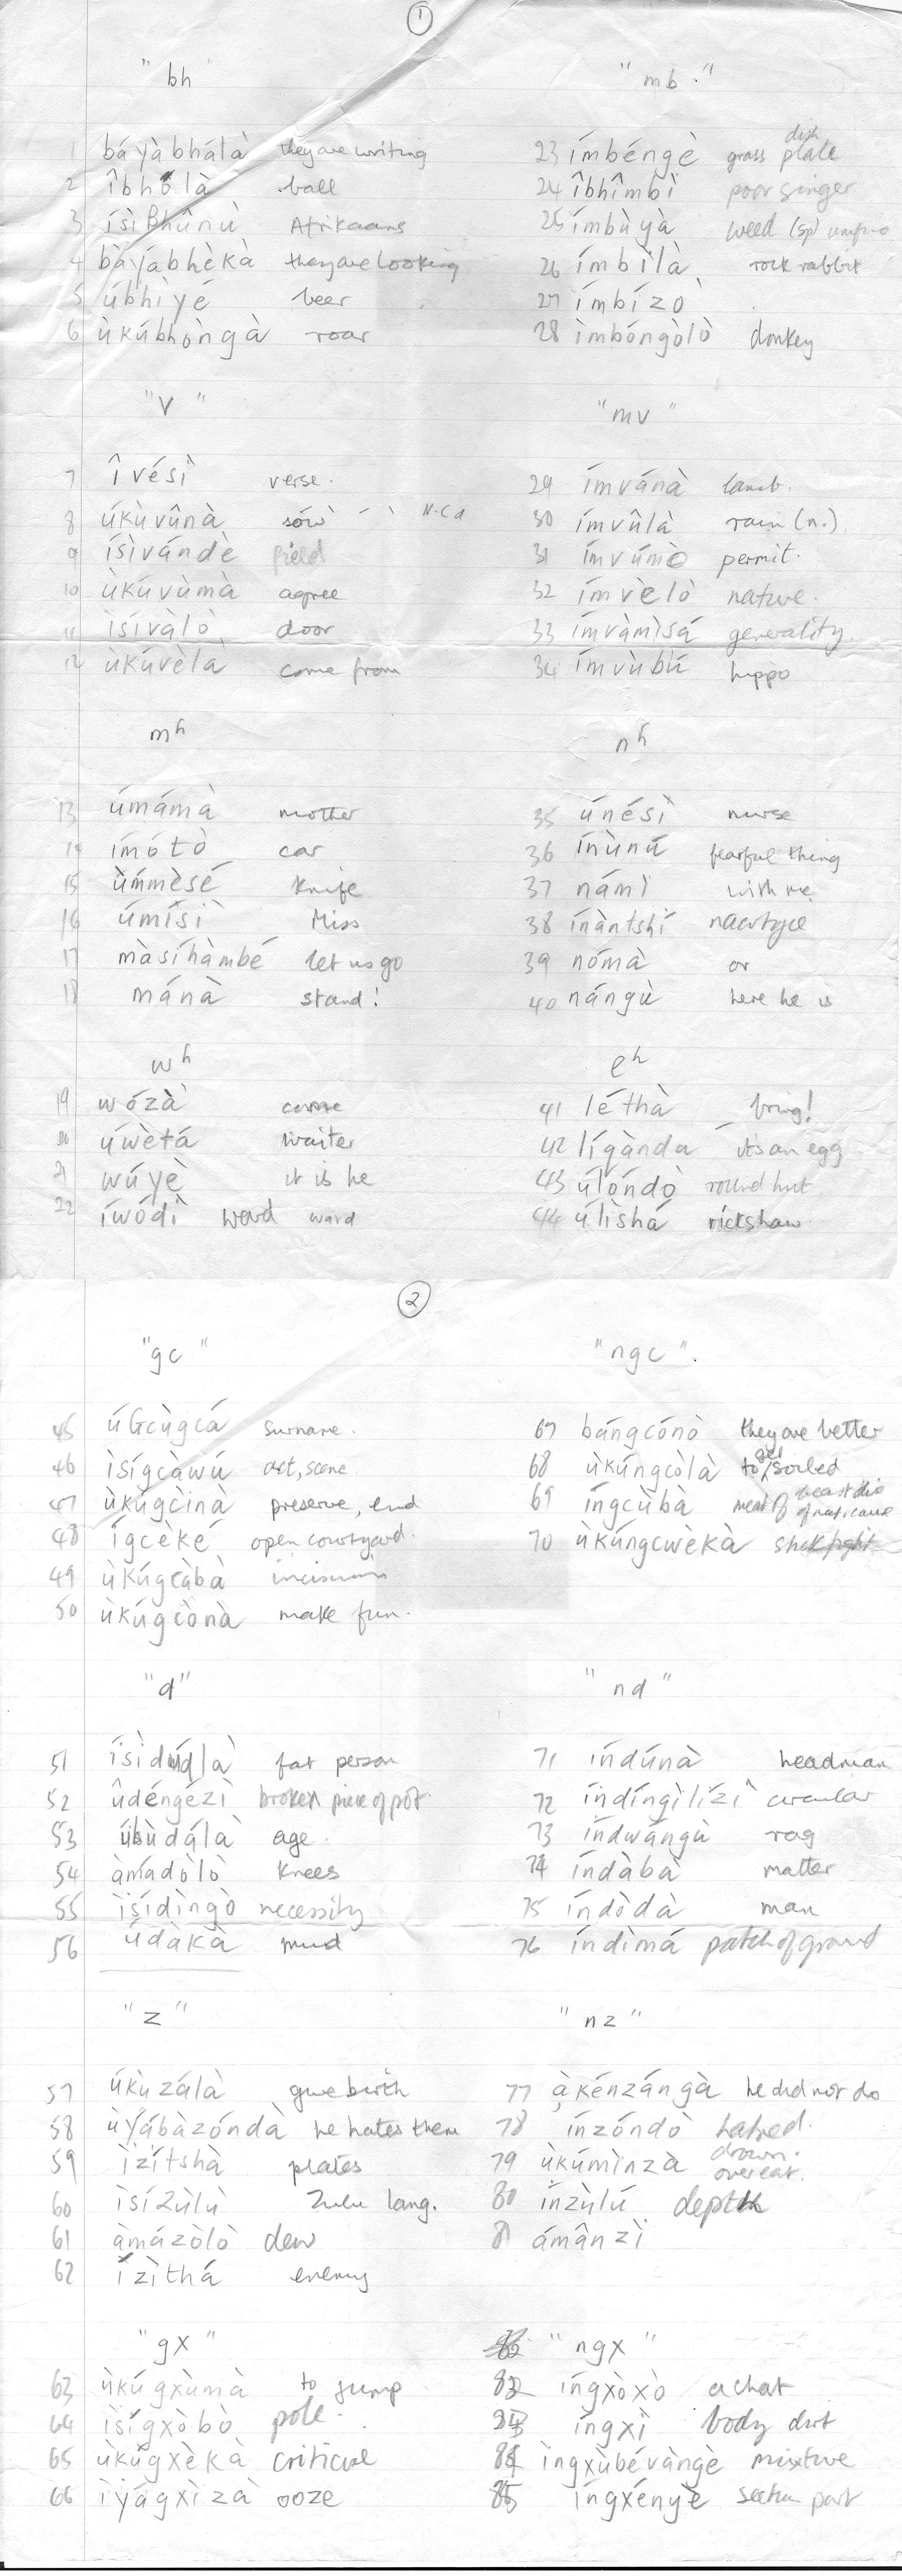 1
"bh"
1 báyàbhálà they are writing
2 îbhólà ball
3 ísìBhûnù Afrikaans
4 bàyábhèkà they are looking
5 úbhìyé beer
6 ùkúbhòngà roar
"v"
7 îvésì verse.
8 úkùvûnà sow N.Cd
9 ísìvándè field
10 ùkúvùmà agree
11 ìsívàlò door
12 ùkúvèlà come from
mh
13 úmámà mother
14 ímótò car
15 ùmmèsé knife
16 úmísì Miss
17 màsíhàmbé let us go
18 mánà stand!
wh
19 wózà come
20 úwètá waiter
21 wúyè it is he
22 íwódì ward ward
"mb."
23 ímbéngè grass plate dish
24 îbhîmbì poor singer
25 ímbùyà weed (sp)
26 ímbìlà rock rabbit
27 ímbízò
28 ìmbóngòlò donkey
"mv"
29 ímvánà lamb.
30 ímvûlà rain (n.)
31 ímvúmò permit.
32 ímvèlò nature.
33 ímvàmìsá generality.
34 ímvùbú hippo
nh
35 únésì nurse
36 ínùnú fearful thing
37 námì with me
38 ínàntshí naartjie
39 nómà or
40 nángù here he is
lh
41 léthà bring!
42 lígàndá it's an egg
43 úlóndò round hut
44 úlìshá rickshaw
2
"gc"
45 úGcùgcá surname.
46 ìsígcàwú act, scene
47 ùkúgcìnà preserve, end
48 ígcèké open courtyard.
49 ùkúgcàbà incision
50 ùkúgcònà make fun.
"d"
51 ísìdúdlà fat person
52 ûdéngézì broken piece of pot
53 úbùdálà age.
54 àmádòlò knees
55 ìsídìngò necessity
56 údàkà mud
"z"
57 úkùzálà give birth
58 ùyábàzóndà he hates them
59 ìzítshà plates
60 ìsíZùlù Zulu lang.
61 àmázòlò dew
62 ízìthá enemy
"gx"
63 ùkúgxùmà to jump
64 ìsígxòbò pole.
65 ùkúgxèkà criticise
66 ìyágxìzà ooze
"ngc".
67 bángcónò they are better
68 ùkúngcòlà to get soiled
69 íngcùbà meat of beast die of nat. cause
70 ùkúngcwèkà stick fight
"nd"
71 índúnà headman
72 índíngìlízì circular
73 índwángù rag
74 índàbà matter
75 índòdà man
76 índìmá patch of ground
"nz"
77 àkénzángà he did not do
78 ínzóndò hatred.
79 ùkúmìnzà drown. overeat.
80 ínzùlú depth
81 ámânzì
"ngx"
íngxòxò a chat
íngxì body dirt
ìngxùbévàngè mixture
íngxényè section part